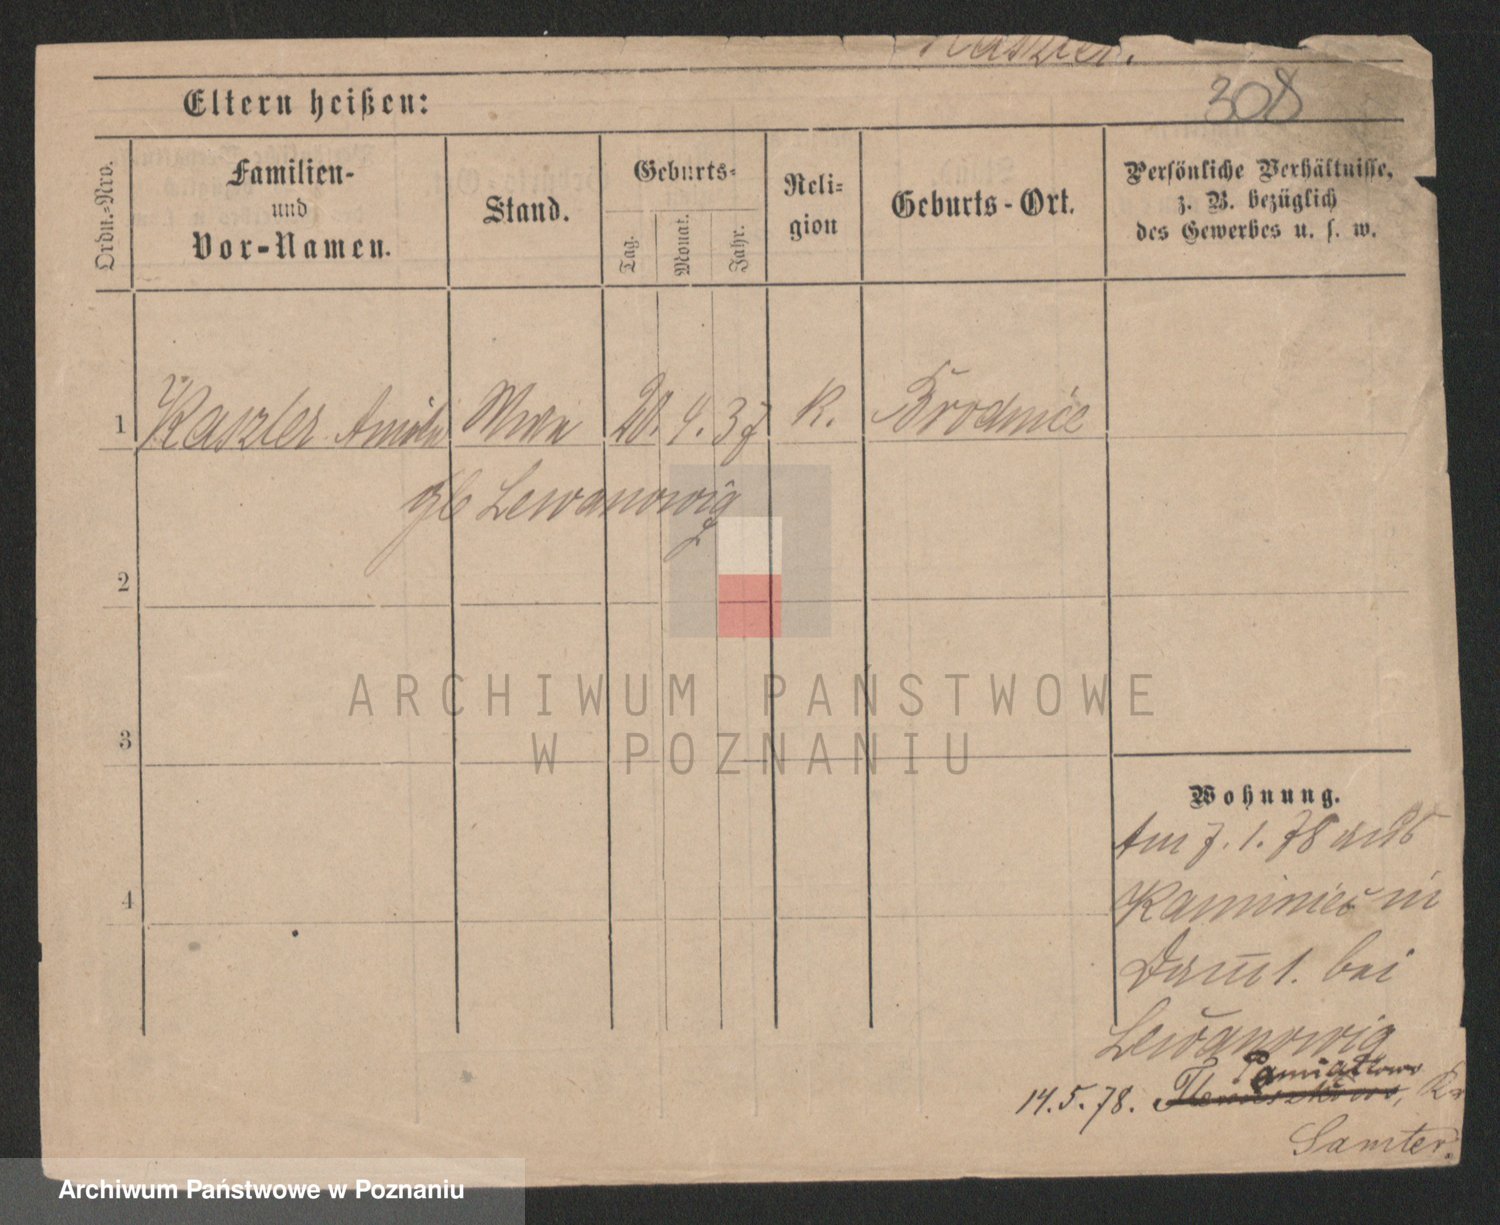 Kaszler.
308
Eltern heißen:
Ordn.-Nro.
Familien-
und
Vor-Namen.
Stand.
Geburts-
Tag.
Monat.
Jahr.
Reli-
gion
Geburts-Ort.
Persönliche Verhältnisse,
z. B. bezüglich
des Gewerbes u. s. w.
1 Kaszler 20. 4. 37 K. Brodnice
Lewanowig
2
3
4
Wohnung.
Am 7. 1. 78 aus
in
bei
Lewanowig
Pamiatkowo
14. 5. 78. Kr
Samter.
ARCHIWUM PAŃSTWOWE
W POZNANIU
Archiwum Państwowe w Poznaniu